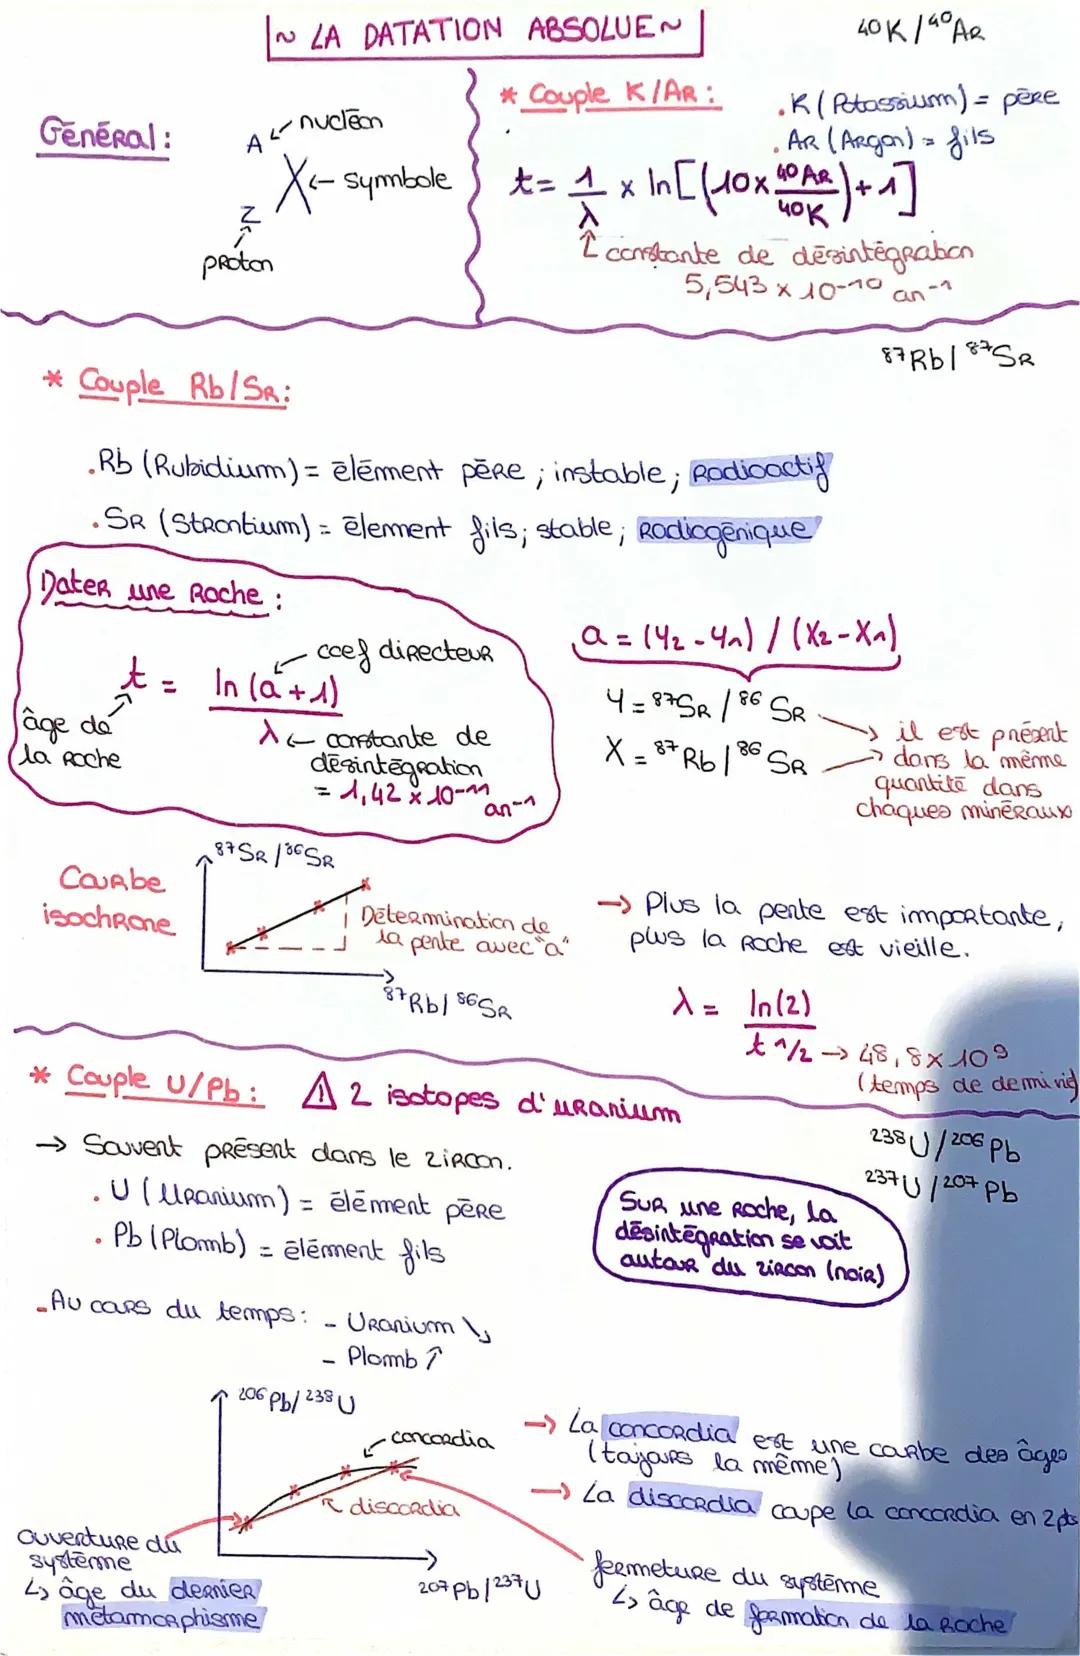 ~ LA DATATION ABSOLUE ~
40K / 40Ar
Général :
A ← nucléon
X ← symbole
Z
proton
* Couple K/Ar :
. K (Potassium) = père
. Ar (Argon) = fils
t = 1/λ × ln[(10 × 40Ar/40K) + 1]
constante de désintégration
5,543 × 10-10 an-1
87Rb / 87Sr
* Couple Rb/Sr :
. Rb (Rubidium) = élément père ; instable ; Radioactif
. Sr (Strontium) = élement fils ; stable ; Radiogénique
Dater une Roche :
coef directeur
t = ln(a+1) / λ
âge de la Roche
constante de désintégration
= 1,42 × 10-11 an-1
a = (Y2 - Y1) / (X2 - X1)
Y = 87Sr / 86Sr
X = 87Rb / 86Sr
→ il est présent
→ dans la même
quantité dans
chaques minéraux
Courbe
isochrone
87Sr / 86Sr
Détermination de
la pente avec "a"
87Rb / 86Sr
→ Plus la pente est importante,
plus la Roche est vieille.
λ = ln(2) / t1/2 → 48,8 × 10 9
(temps de demi vie)
* Couple U/Pb : ⚠ 2 isotopes d'uranium
238U / 206Pb
237U / 207Pb
→ Souvent présent dans le zircon.
. U (Uranium) = élément père
. Pb (Plomb) = élément fils
Sur une Roche, la
désintégration se voit
autour du zircon (noir)
- Au cours du temps : - Uranium ↘
- Plomb ↑
206Pb / 238U
concordia
discordia
207Pb / 237U
→ La concordia est une courbe des âges
(toujours la même)
→ La discordia coupe la concordia en 2 pts
ouverture du
système
↳ âge du dernier
métamorphisme
fermeture du système
↳ âge de formation de la Roche